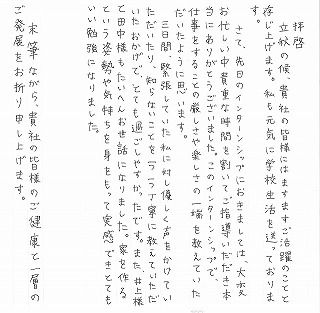 拝啓
立秋の候、貴社の皆様にはますますご活躍のことと
存じ上げます。私も元気に学校生活を送っておりま
す。
さて、先日のインターンシップにおきましては、大変
お忙しい中貴重な時間を割いてご指導いただき本
当にありがとうございました。このインターンシップで、
仕事をすることの厳しさや楽しさの一端を教えていた
だいたように思います。
三日間、緊張していた私に対し優しく声をかけてい
ただいたり、知らないことを一つ一つ丁寧に教えていただ
いたおかげで、とても過ごしやすかったです。また、井上様
と田中様もたいへんお世話になりました。家を作る
という姿勢や気持ちを身をもって実感できとても
いい勉強になりました。
末筆ながら、貴社の皆様のご健康と一層の
ご発展をお祈り申し上げます。